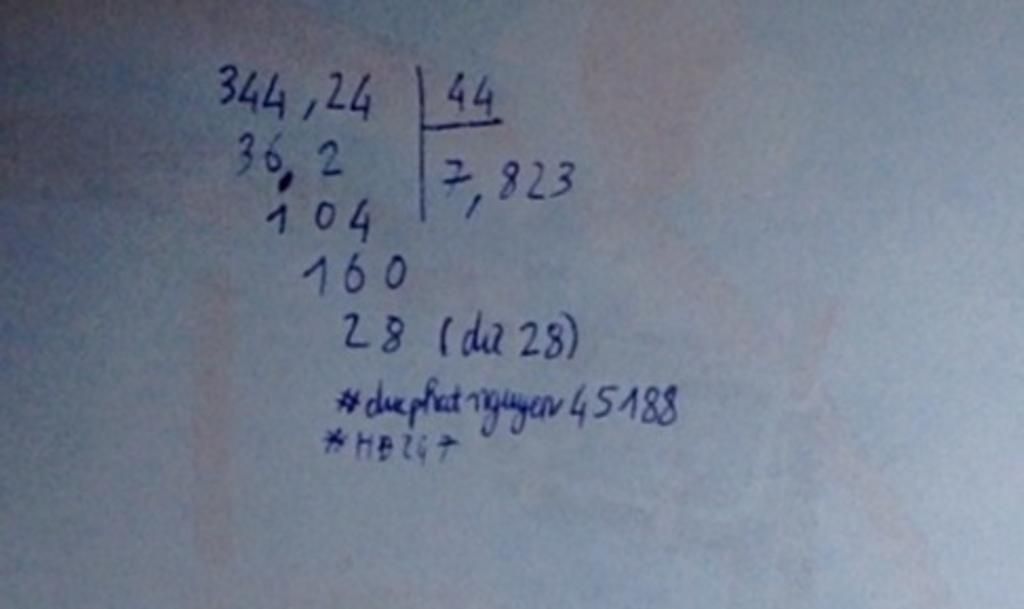 344,24 44
36,2 7,823
104
160
28 (dư 28)
#ducphatnguyen45188
#HB247